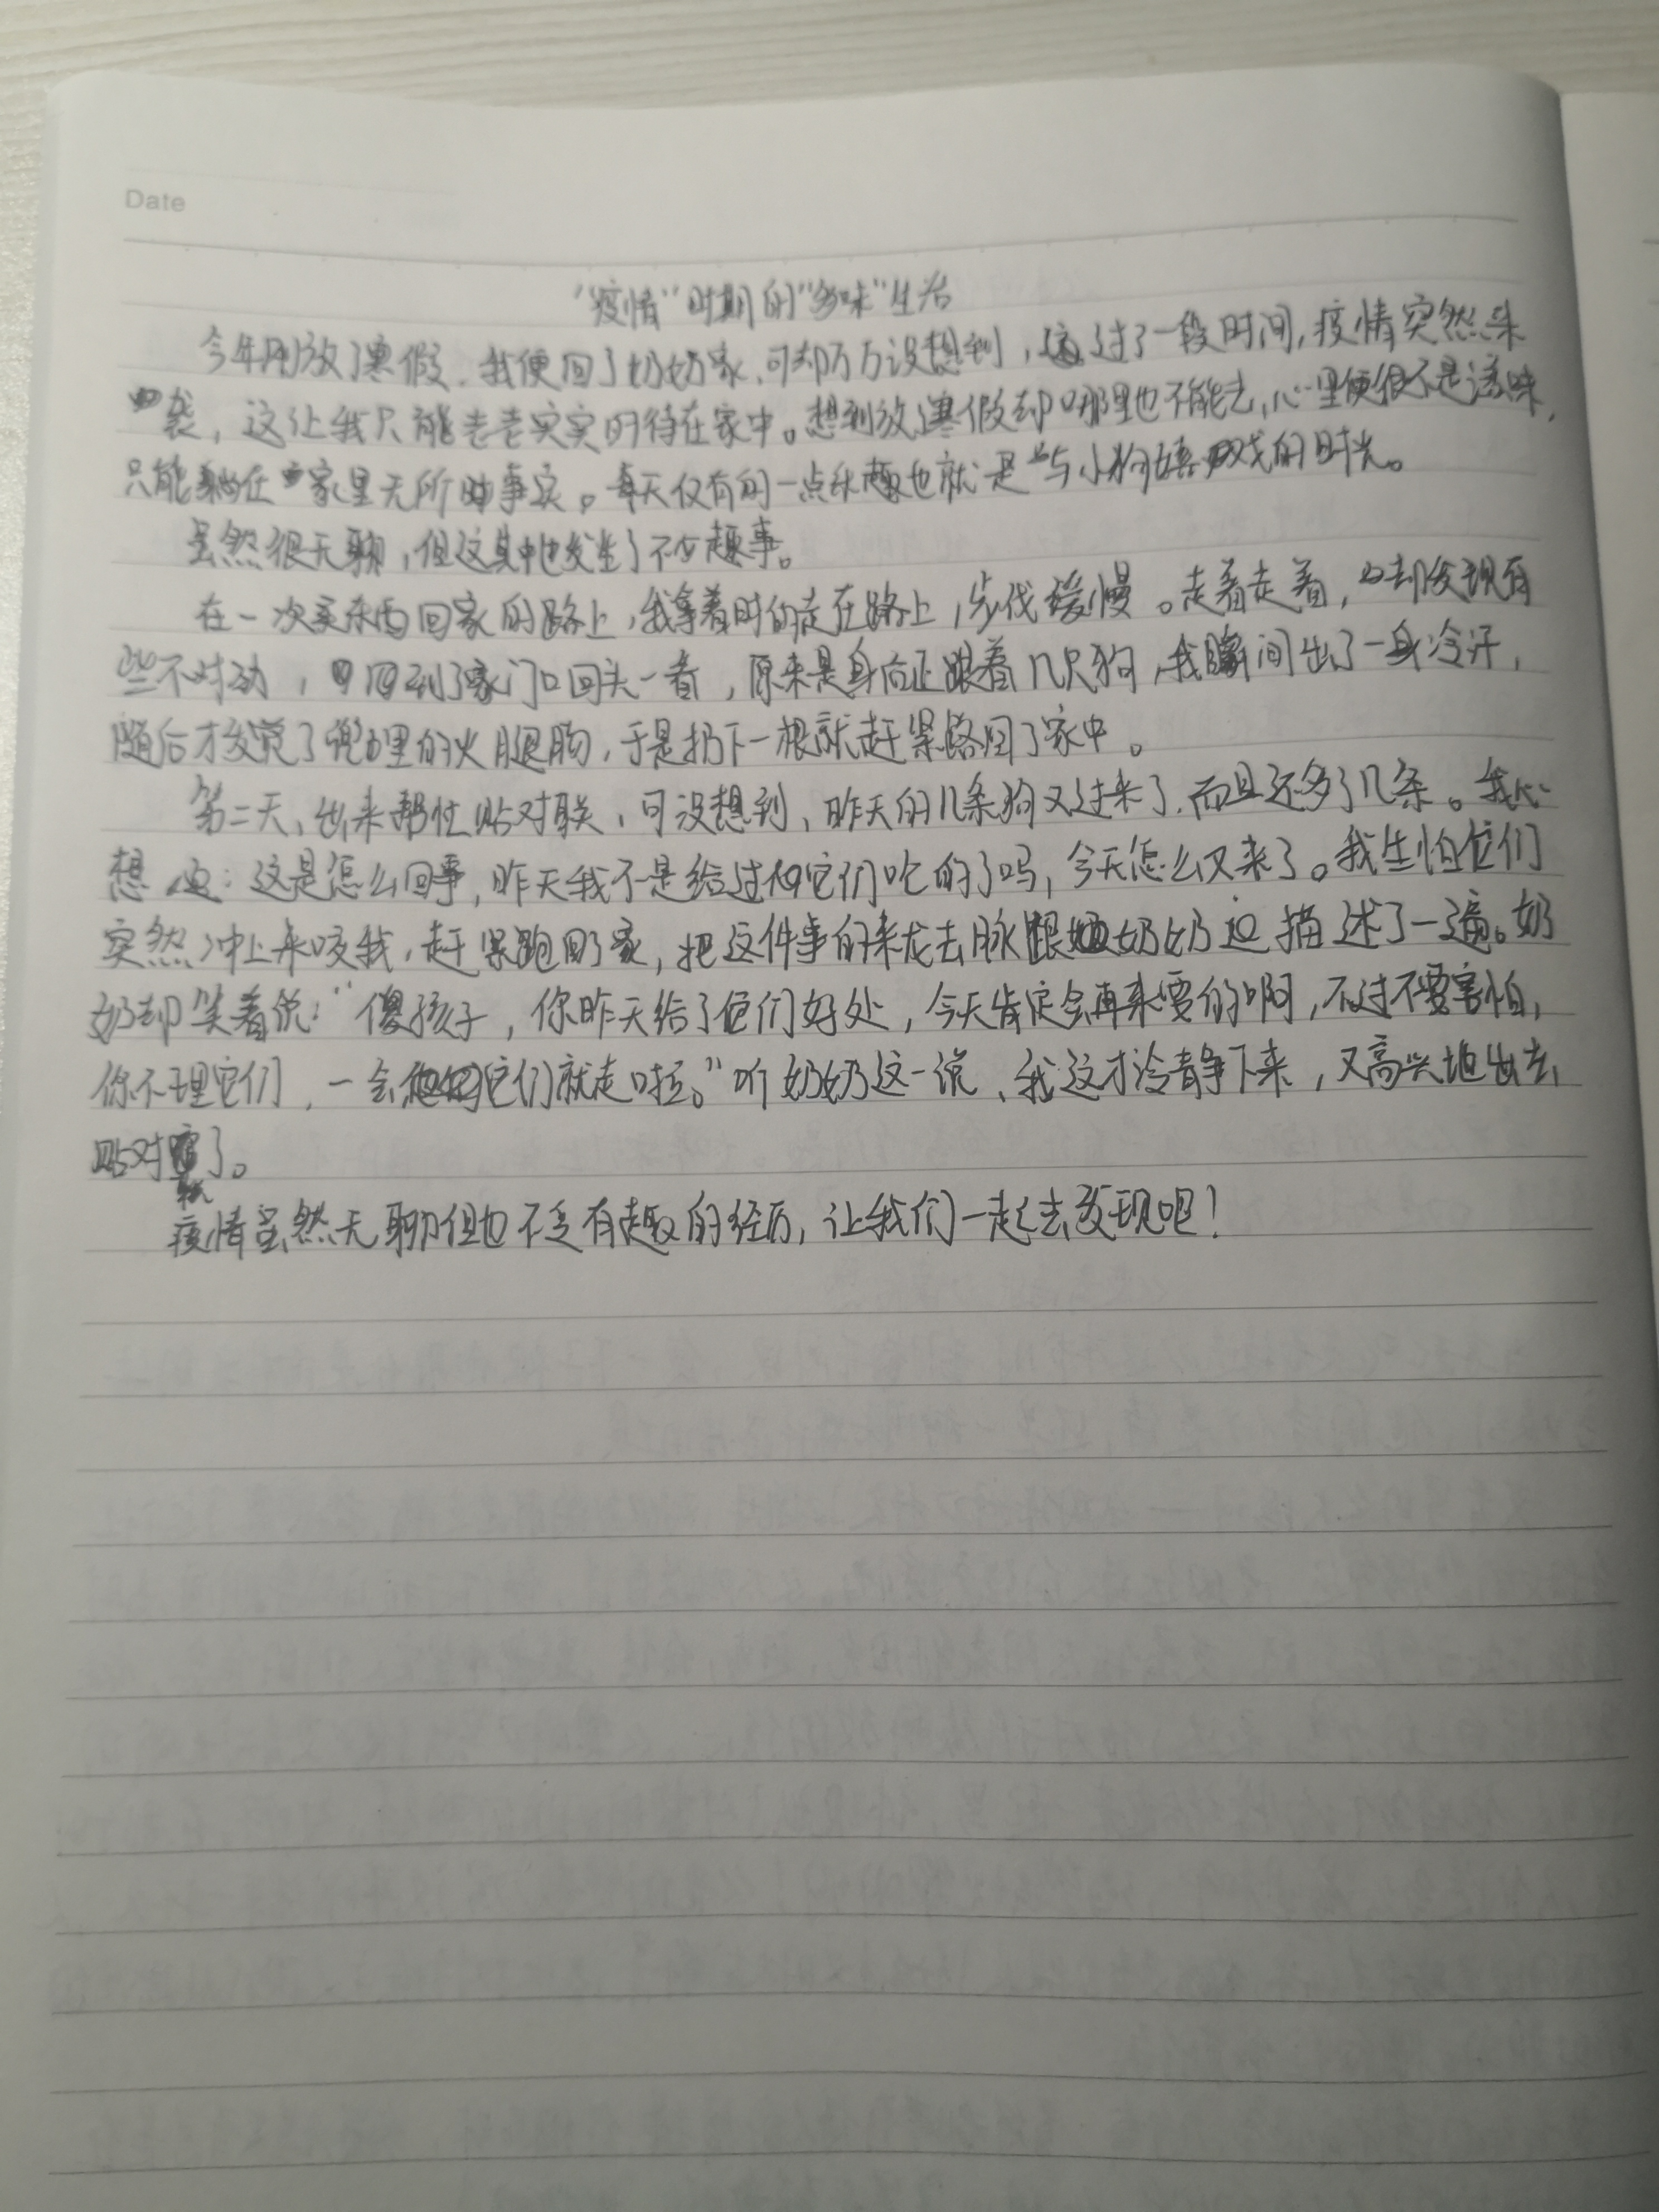 Date
"疫情"时期的"多味"生活
今年刚放了寒假，我便回了奶奶家，可却万万没想到，过了一段时间，疫情突然来
袭，这让我只能老老实实的待在家中。想到放了寒假却哪里也不能去，心里便很不是滋味，
只能躺在家里无所事实。每天仅有的一点乐趣也就是与小狗嬉戏的时光。
虽然很无聊，但这其中也发生了不少趣事。
在一次买东西回家的路上，我拿着时的走在路上，步伐缓慢。走着走着，却发现有
些不对劲，回到了家门口回头一看，原来是身后正跟着几只狗，我瞬间出了一身冷汗，
随后才发觉了兜里的火腿肠，于是扔下一根就赶紧回了家中。
第二天，出来帮忙贴对联，可没想到，昨天的几条狗又过来了，而且还多了几条。我心
想：这是怎么回事，昨天我不是给过它们吃的了吗，今天怎么又来了。我生怕它们
突然冲上来咬我，赶紧跑回了家，把这件事的来龙去脉跟奶奶描述了一遍。奶
奶却笑着说："傻孩子，你昨天给了它们好处，今天肯定会再来要的啊，不过不要害怕，
你不理它们，一会它们就走啦。"听奶奶这一说，我这才冷静下来，又高兴地出去
贴对联了。
疫情虽然无聊但也不乏有趣的经历，让我们一起去发现吧！